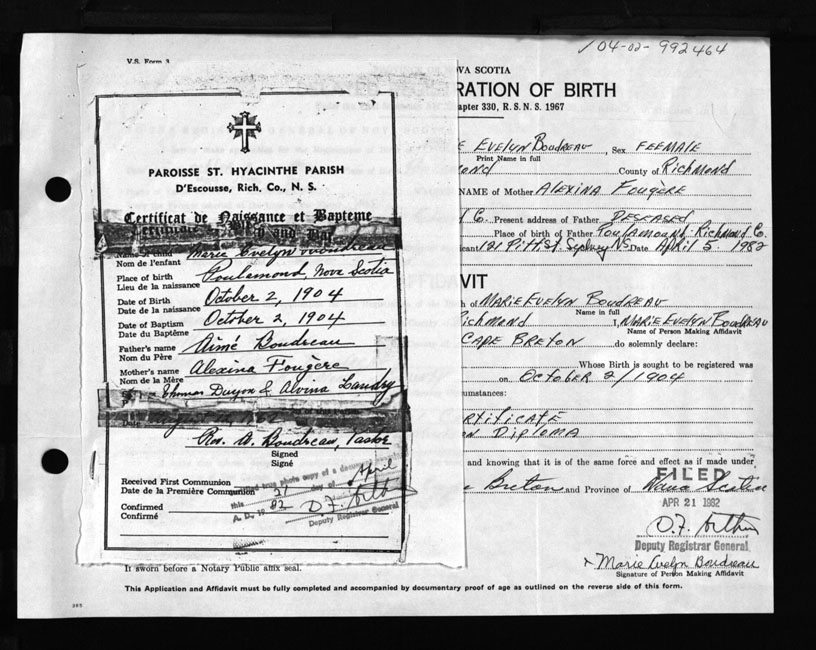 104-02-992464
V.S. Form 3
OVA SCOTIA
RATION OF BIRTH
apter 330, R.S.N.S. 1967
E EVELYN BOUDREAU, Sex FEEMALE
Print Name in full
OND County of RICHMOND
NAME of Mother ALEXINA FOUGERE
C. Present address of Father DESCASED
Place of birth of Father POULAMOUND RICHMOND C.
icant 121 PITT ST. SYDNEY N.S Date APRIL 5. 1982
VIT
h of MARIE EVELYN BOUDREAU
Name in full
RICHMOND I, MARIE EVELYN BOUDREAU
Name of Person Making Affidavit
CAPE BRETON do solemnly declare:
Whose Birth is sought to be registered was
on OCTOBER 2/1904
umstances:
ERTIFICATE
ON DIPLOMA
and knowing that it is of the same force and effect as if made under
FILED
Breton and Province of Nova Scotia
APR 21 1982
D.F. Arthur
Deputy Registrar General
x Marie Evelyn Boudreau
Signature of Person Making Affidavit
PAROISSE ST. HYACINTHE PARISH
D'Escousse, Rich. Co., N. S.
Certificat de Naissance et Bapteme
Name of child Marie Evelyn Boudreau
Nom de l'enfant
Place of birth Poulamond, Nova Scotia
Lieu de la naissance
Date of Birth October 2, 1904
Date de la naissance
Date of Baptism October 2, 1904
Date du Baptême
Father's name Aimé Boudreau
Nom du Père
Mother's name Alexina Fougère
Nom de la Mère
Thomas Duyon & Alvina Landry
Date
Rev. A. Boudreau, Pastor
Signed
Signé
Received First Communion
Date de la Première Communion
true photo copy of a
this 21 day of April
A. D., 1982
Confirmed
Confirmé
D.F. Arthur
Deputy Registrar General
It sworn before a Notary Public affix seal.
This Application and Affidavit must be fully completed and accompanied by documentary proof of age as outlined on the reverse side of this form.